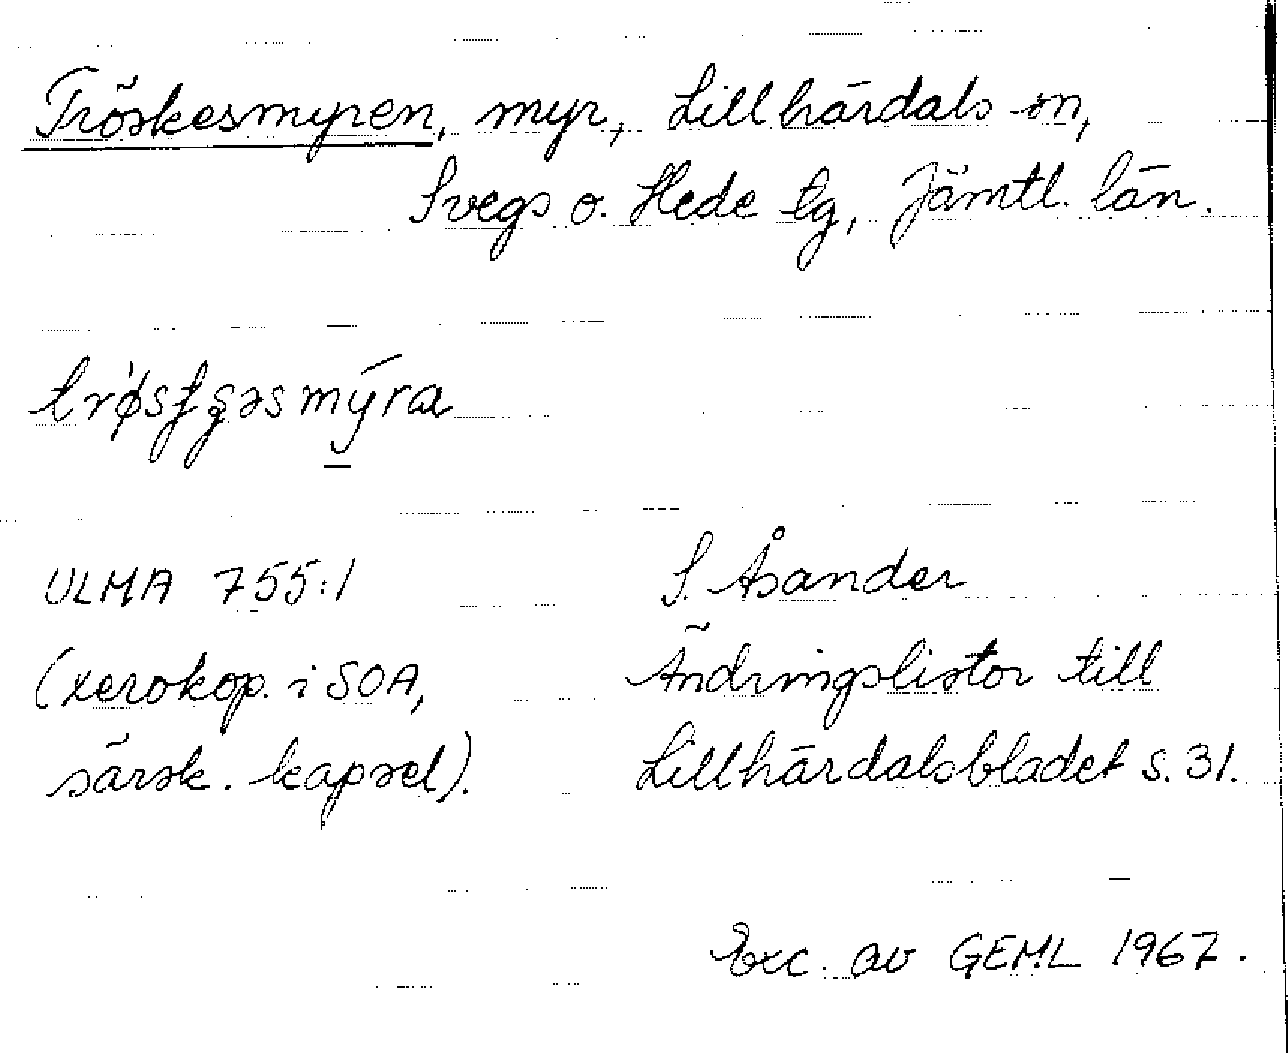 Tröskesmyren, myr, Lillhärdals sn,
Svegs o. Hede tg, Jämtl. län.
ULMA 755:1
S. Åsander
(xerokop. i SOA,
Ändringslistor till
särsk. kapsel).
Lillhärdalsbladet s. 31.
Exc. av GEML 1967.